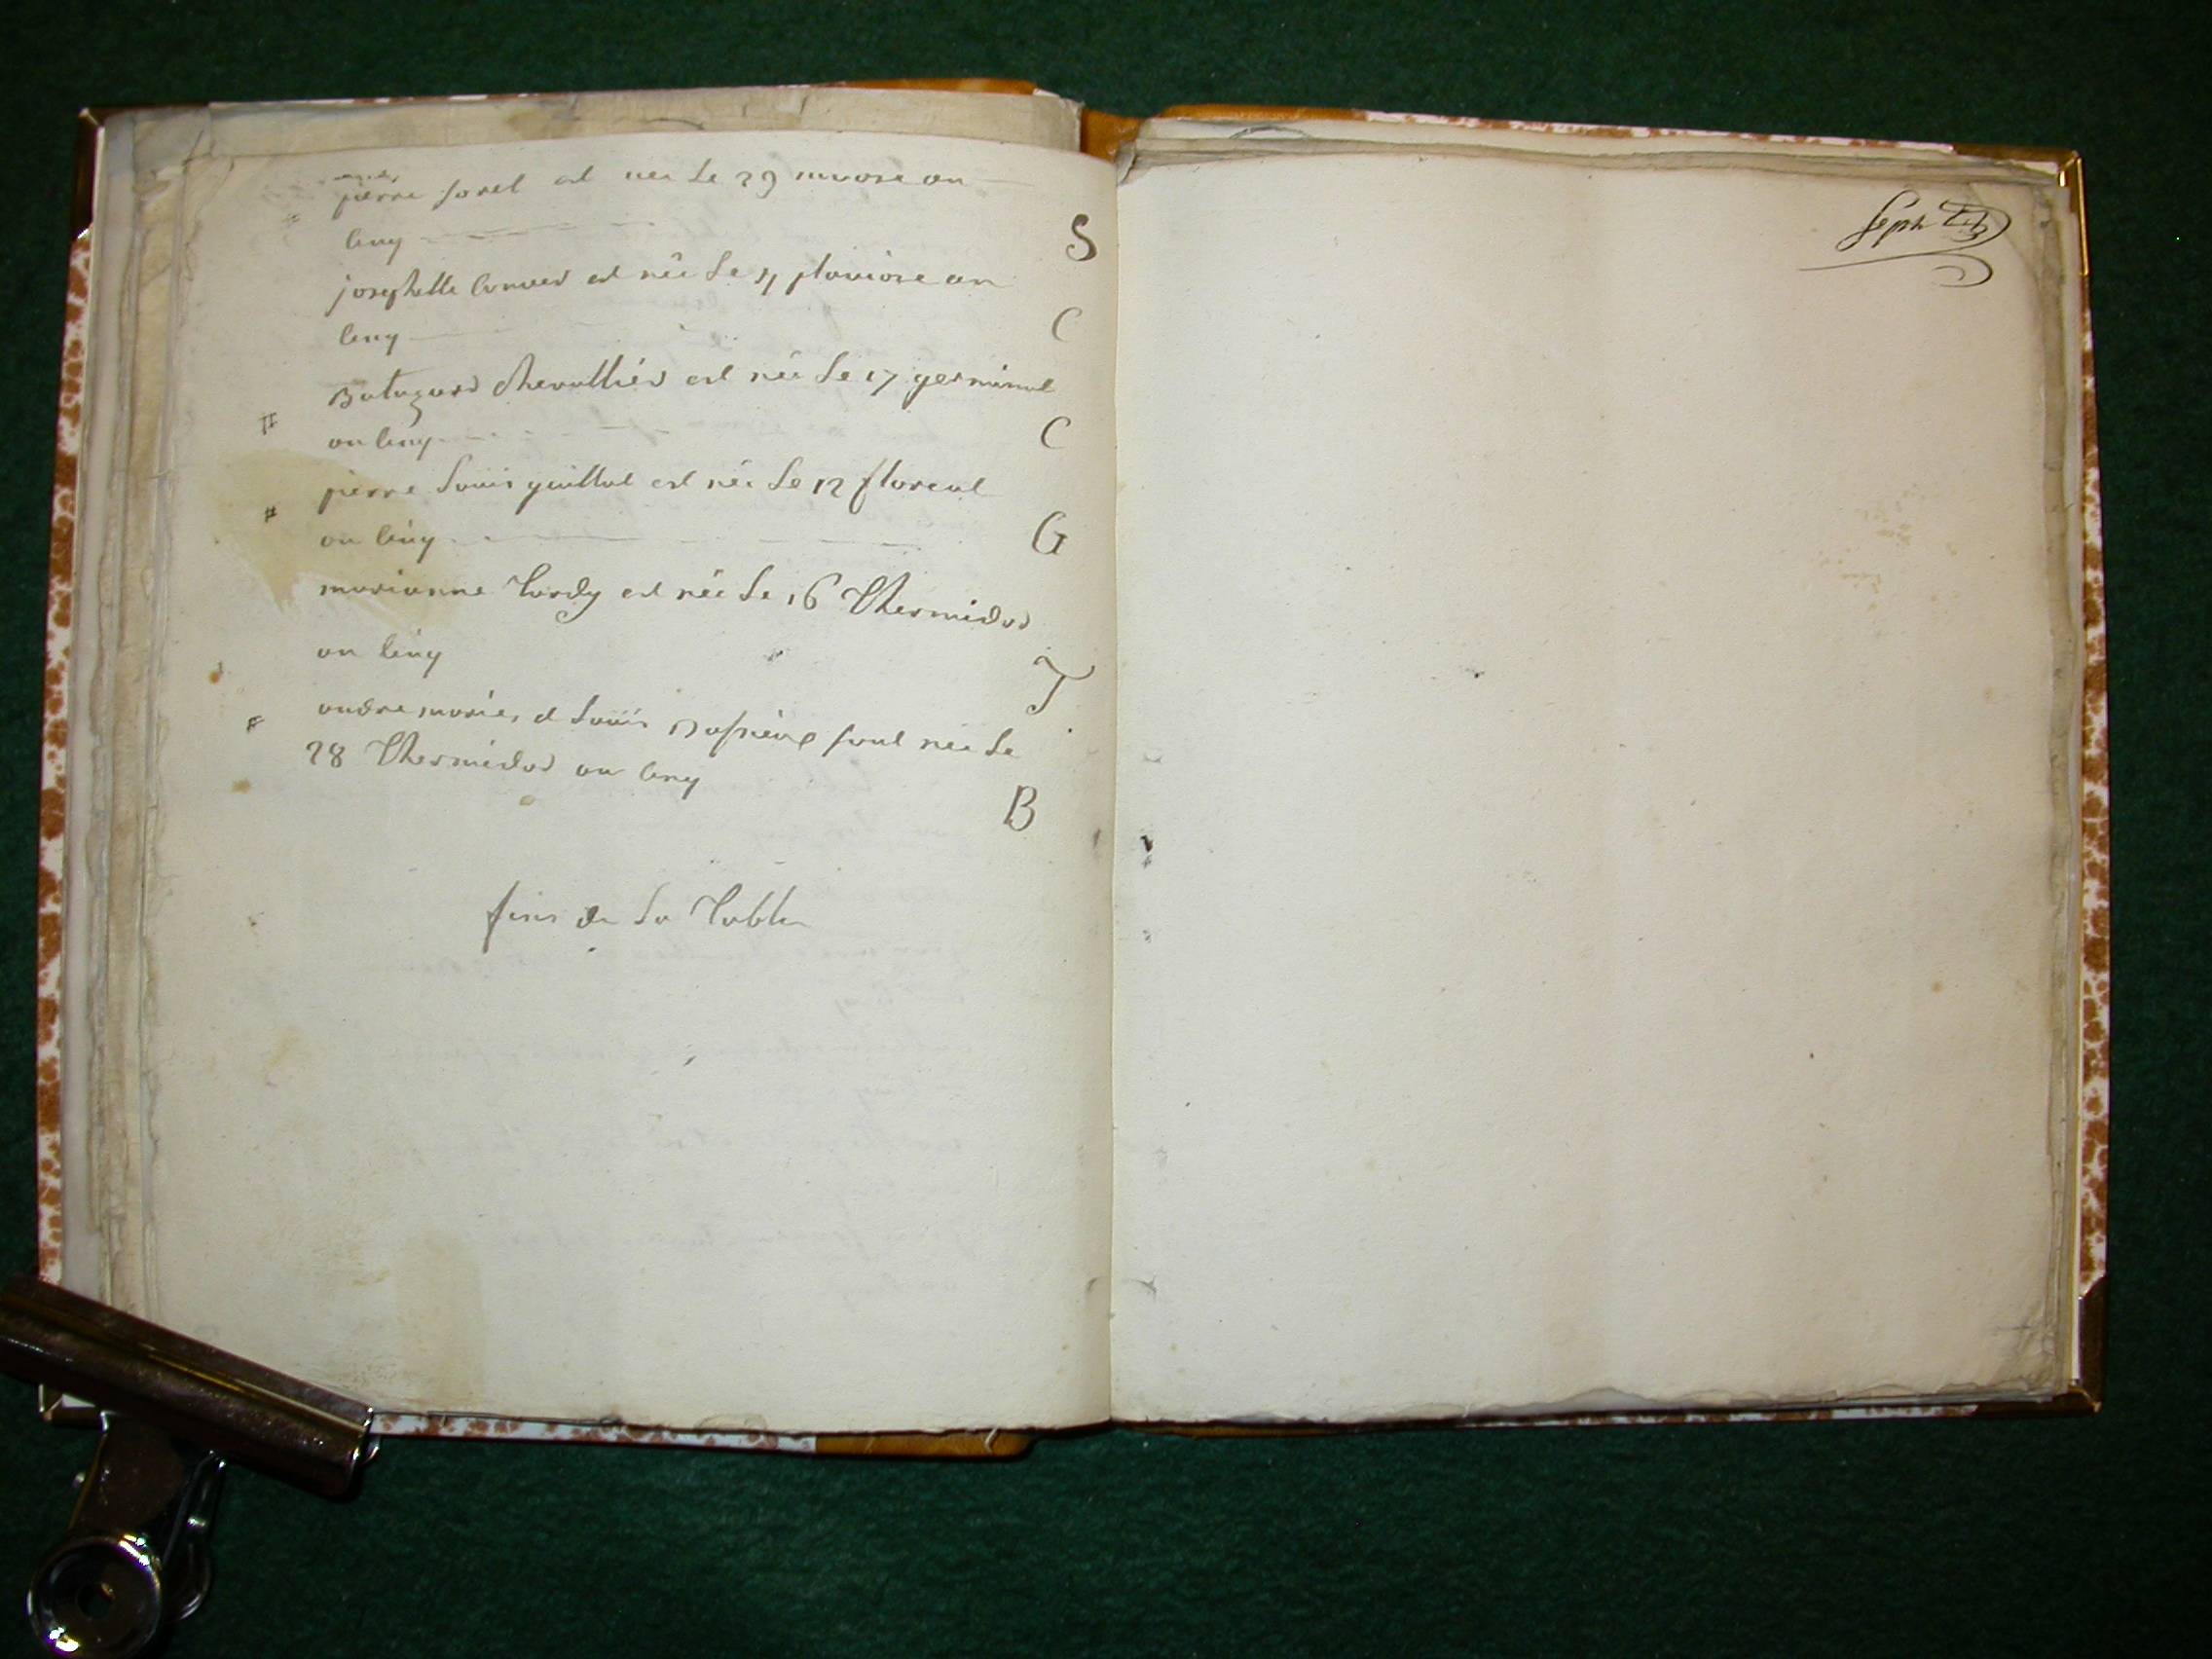 pierre sorel est née le 29 nivose an
cinq
S
josephette cornier est née le 4 pluviose an
cinq
C
Batazard chevallier est née le 17 germinal
# an cinq
C
pierre louis guillot est née le 12 floreal
# an cinq
G
marianne tardy est née le 16 thermidor
an cinq
T
andre marie, et louis sont née le
# 28 thermidor an cinq
B
fins de la table